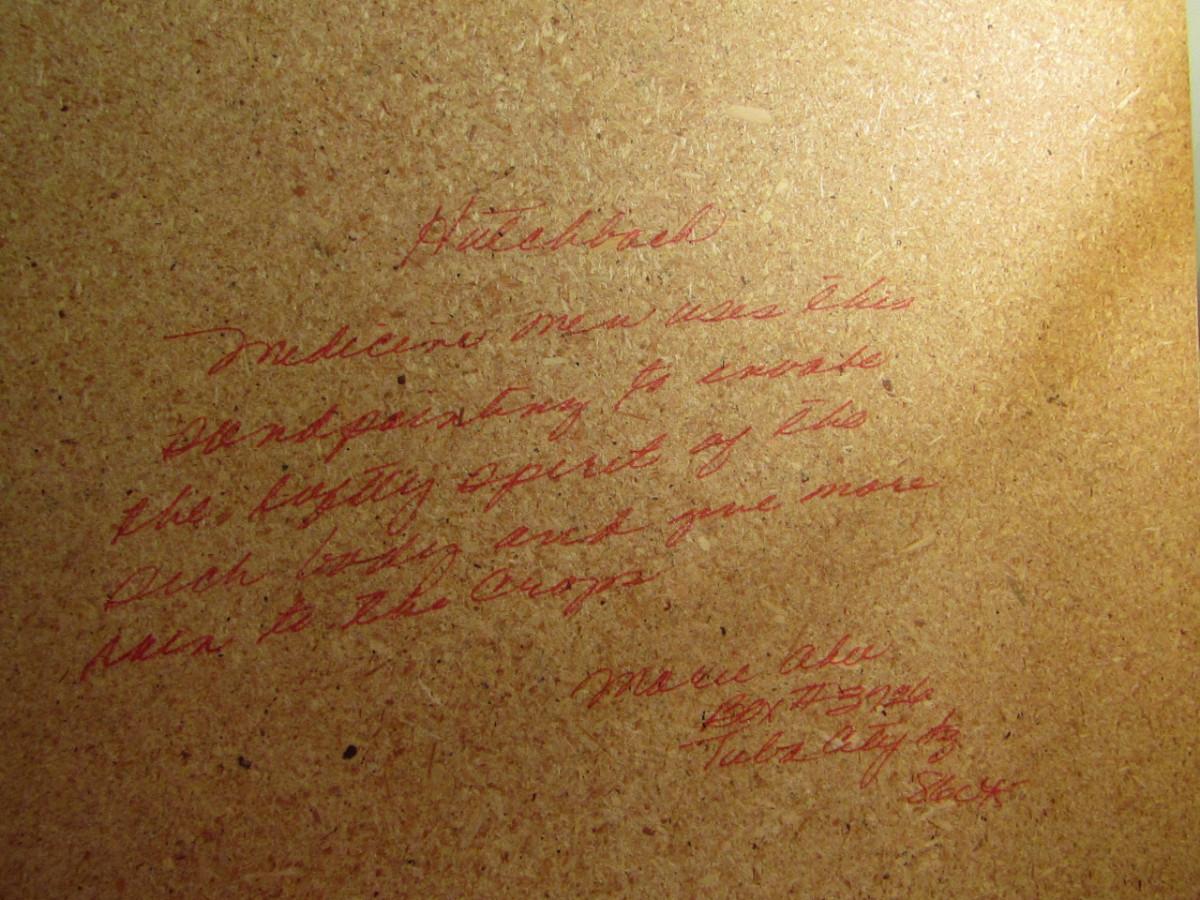 Hutchback
Medicine men uses this
sandpainting to invoke
the spirit of the
sick body and give more
rain to the crops
Marie
Box #
Tuba City Az